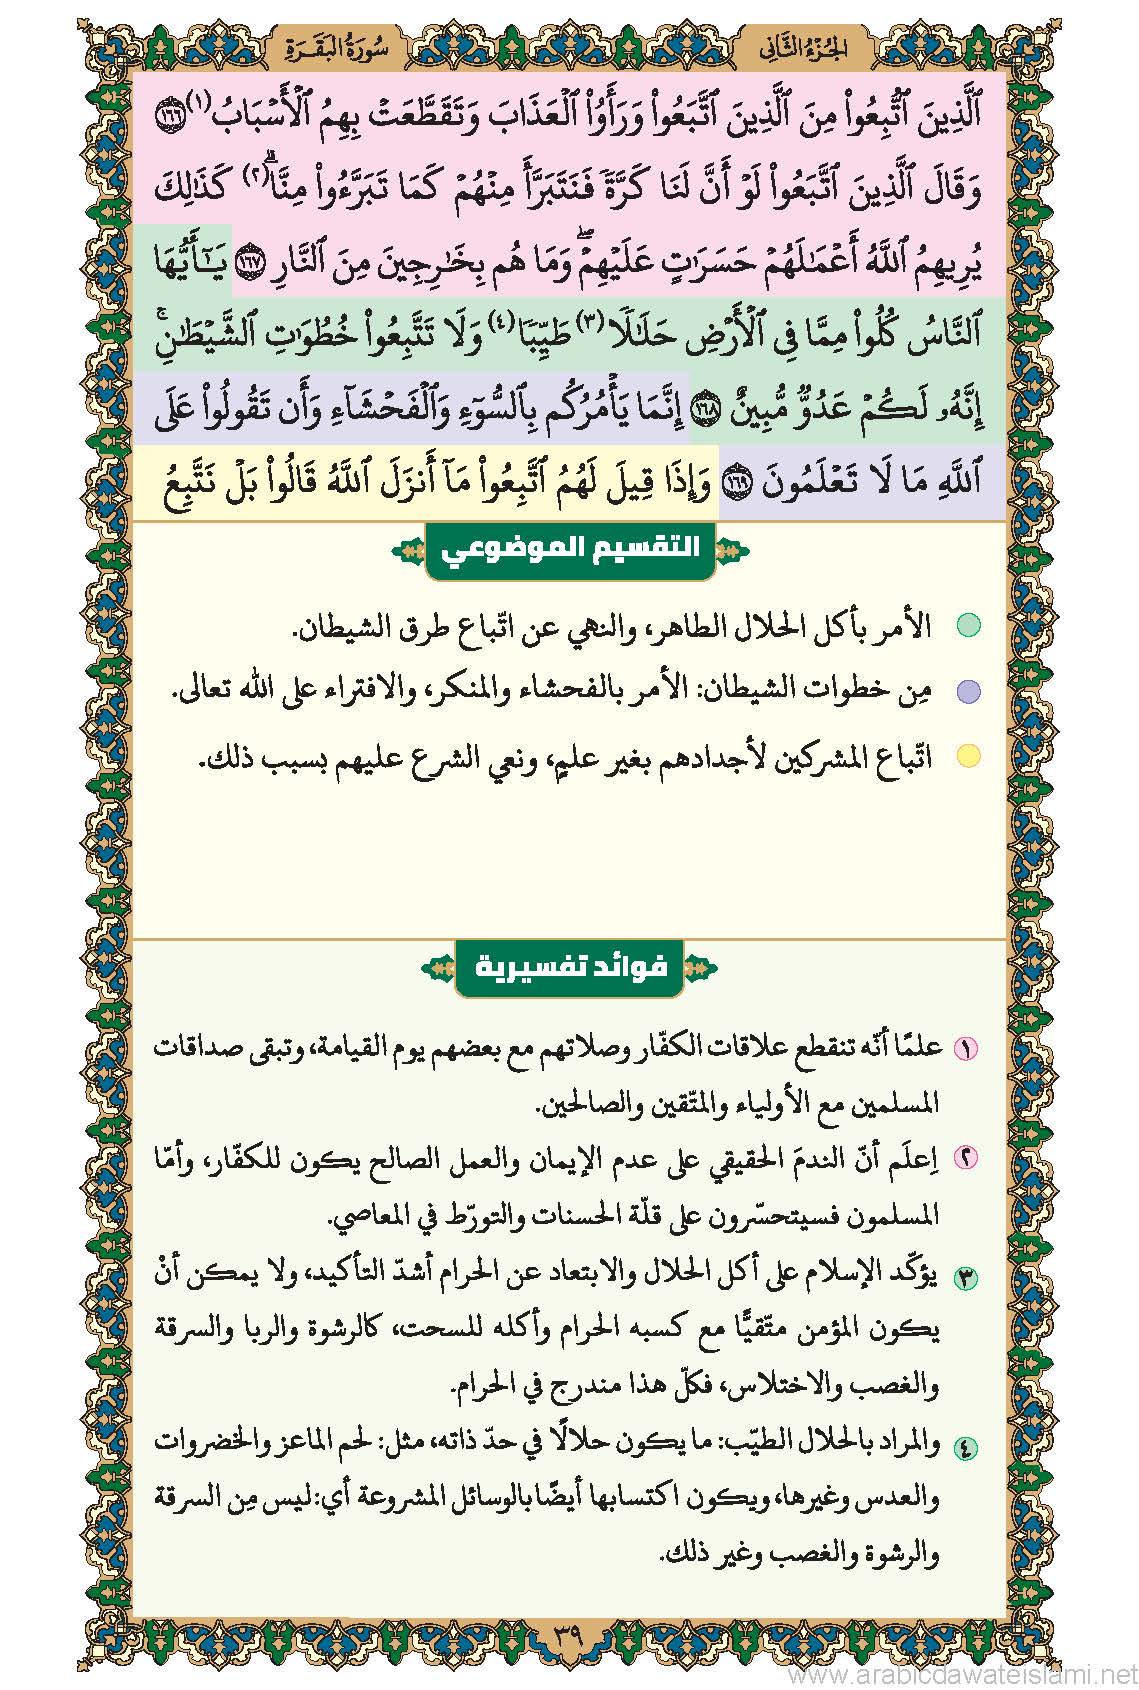 الجُزْءُ الثَّانِي
سُورَةُ البَقَرَةِ
ٱلَّذِينَ ٱتُّبِعُواْ مِنَ ٱلَّذِينَ ٱتَّبَعُواْ وَرَأَوُاْ ٱلۡعَذَابَ وَتَقَطَّعَتۡ بِهِمُ ٱلۡأَسۡبَابُ(١) ١٦٦
وَقَالَ ٱلَّذِينَ ٱتَّبَعُواْ لَوۡ أَنَّ لَنَا كَرَّةٗ فَنَتَبَرَّأَ مِنۡهُمۡ كَمَا تَبَرَّءُواْ مِنَّاۗ(٢) كَذَٰلِكَ
يُرِيهِمُ ٱللَّهُ أَعۡمَٰلَهُمۡ حَسَرَٰتٍ عَلَيۡهِمۡۖ وَمَا هُم بِخَٰرِجِينَ مِنَ ٱلنَّارِ ١٦٧ يَٰٓأَيُّهَا
ٱلنَّاسُ كُلُواْ مِمَّا فِي ٱلۡأَرۡضِ حَلَٰلٗا(٣) طَيِّبٗا(٤) وَلَا تَتَّبِعُواْ خُطُوَٰتِ ٱلشَّيۡطَٰنِۚ
إِنَّهُۥ لَكُمۡ عَدُوّٞ مُّبِينٌ ١٦٨ إِنَّمَا يَأۡمُرُكُم بِٱلسُّوٓءِ وَٱلۡفَحۡشَآءِ وَأَن تَقُولُواْ عَلَى
ٱللَّهِ مَا لَا تَعۡلَمُونَ ١٦٩ وَإِذَا قِيلَ لَهُمُ ٱتَّبِعُواْ مَآ أَنزَلَ ٱللَّهُ قَالُواْ بَلۡ نَتَّبِعُ
التقسيم الموضوعي
الأمر بأكل الحلال الطاهر، والنهي عن اتّباع طرق الشيطان.
مِن خطوات الشيطان: الأمر بالفحشاء والمنكر، والافتراء على الله تعالى.
اتّباع المشركين لأجدادهم بغير علمٍ، ونعي الشرع عليهم بسبب ذلك.
فوائد تفسيرية
١ علمًا أنّه تنقطع علاقات الكفّار وصلاتهم مع بعضهم يوم القيامة، وتبقى صداقات
المسلمين مع الأولياء والمتّقين والصالحين.
٢ اِعلَم أنّ الندمَ الحقيقي على عدم الإيمان والعمل الصالح يكون للكفّار، وأمّا
المسلمون فسيتحسّرون على قلّة الحسنات والتورّط في المعاصي.
٣ يؤكّد الإسلام على أكل الحلال والابتعاد عن الحرام أشدّ التأكيد، ولا يمكن أنْ
يكون المؤمن متّقيًّا مع كسبه الحرام وأكله للسحت، كالرشوة والربا والسرقة
والغصب والاختلاس، فكلّ هذا مندرج في الحرام.
٤ والمراد بالحلال الطيّب: ما يكون حلالًا في حدّ ذاته، مثل: لحم الماعز والخضروات
والعدس وغيرها، ويكون اكتسابها أيضًا بالوسائل المشروعة أي: ليس مِن السرقة
والرشوة والغصب وغير ذلك.
٣٩
www.arabicdawateislami.net